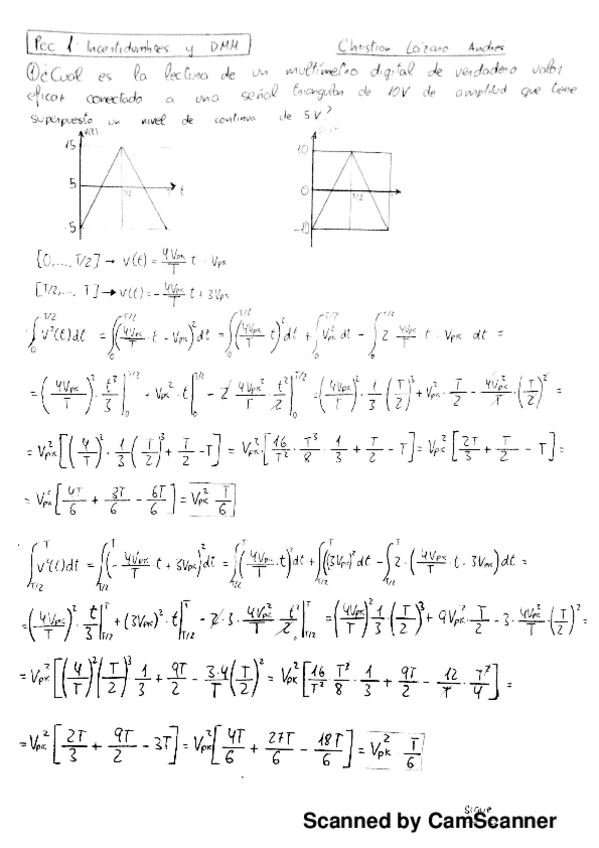 Pec 1: Incertidumbres y DMM
Christian Lázaro Andrés
① ¿Cual es la lectura de un multímetro digital de verdadero valor
eficaz conectado a una señal triangular de 10V de amplitud que tiene
superpuesto un nivel de continua de 5V?
v(t)
15
5
-5
T/2
T
t
10
0
-10
T/2
T
[0,..., T/2] → v(t) = 4Vpk/T t - Vpk
[T/2,..., T] → v(t) = -4Vpk/T t + 3Vpk
∫₀^{T/2} v²(t)dt = ∫₀^{T/2} (4Vpk/T · t - Vpk)² dt = ∫₀^{T/2} (4Vpk/T t)² dt + ∫₀^{T/2} Vpk² dt - ∫₀^{T/2} 2 4Vpk/T t · Vpk dt =
= (4Vpk/T)² · t³/3 |₀^{T/2} + Vpk² · t |₀^{T/2} - 2 4Vpk²/T · t²/2 |₀^{T/2} = (4Vpk/T)² · 1/3 (T/2)³ + Vpk² · T/2 - 4Vpk²/T · (T/2)² =
= Vpk² [(4/T)² · 1/3 (T/2)³ + T/2 - T] = Vpk² [16/T² · T³/8 · 1/3 + T/2 - T] = Vpk² [2T/3 + T/2 - T] =
= Vpk² [4T/6 + 3T/6 - 6T/6] = Vpk² T/6
∫_{T/2}^{T} v²(t)dt = ∫_{T/2}^{T} (-4Vpk/T t + 3Vpk)² dt = ∫_{T/2}^{T} (4Vpk/T · t)² dt + ∫_{T/2}^{T} (3Vpk)² dt - ∫_{T/2}^{T} 2 · (4Vpk/T · t · 3Vpk) dt =
= (4Vpk/T)² · t/3 |_{T/2}^{T} + (3Vpk)² · t |_{T/2}^{T} - 2 · 3 · 4Vpk²/T · t²/2 |_{T/2}^{T} = (4Vpk/T)² 1/3 (T/2)³ + 9Vpk² · T/2 - 3 · 4Vpk²/T · (T/2)² =
= Vpk² [(4/T)² (T/2)³ 1/3 + 9T/2 - 3·4/T (T/2)²] = Vpk² [16/T² T³/8 · 1/3 + 9T/2 - 12/T · T²/4] =
= Vpk² [2T/3 + 9T/2 - 3T] = Vpk² [4T/6 + 27T/6 - 18T/6] = Vpk² · T/6
Sigue
Scanned by CamScanner